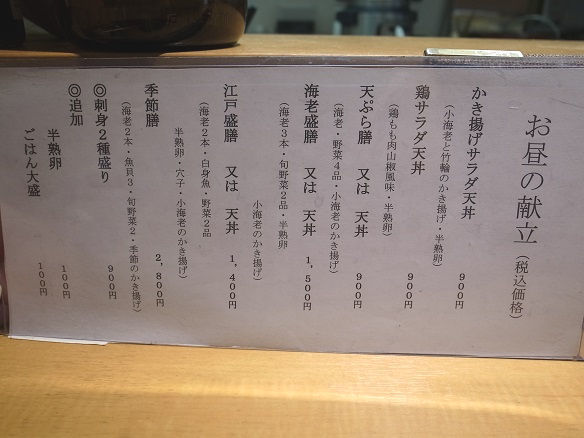 お昼の献立（税込価格）
かき揚げサラダ天丼 900円
（小海老と竹輪のかき揚げ・半熟卵）
鶏サラダ天丼 900円
（鶏もも肉山椒風味・半熟卵）
天ぷら膳 又は 天丼 900円
（海老・野菜4品・小海老のかき揚げ）
海老盛膳 又は 天丼 1,500円
（海老3本・旬野菜2品・半熟卵
小海老のかき揚げ）
江戸盛膳 又は 天丼 1,400円
（海老2本・白身魚・野菜2品
半熟卵・穴子・小海老のかき揚げ）
季節膳 2,800円
（海老2本・魚貝3・旬野菜2・季節のかき揚げ）
◎刺身2種盛り 900円
◎追加
半熟卵 100円
ごはん大盛 100円